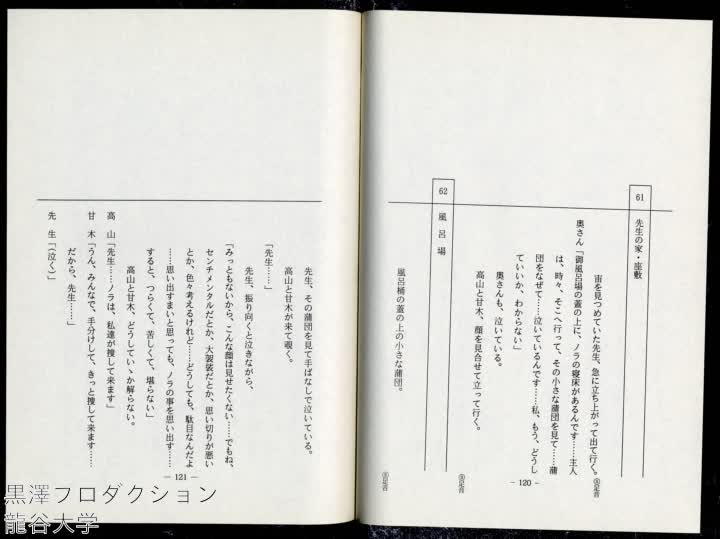 61 先生の家・座敷
宙を見つめていた先生、急に立ち上がって出て行く。
Ⓢ足音
奥さん「御風呂場の蓋の上に、ノラの寝床があるんです……主人
は、時々、そこへ行って、その小さな蒲団を見て……蒲
団をなぜて……泣いているんです……私、もう、どうし
ていいか、わからない」
奥さんも、泣いている。
高山と甘木、顔を見合せて立って行く。
Ⓢ足音
62 風呂場
風呂桶の蓋の上の小さな蒲団。
Ⓢ足音
－120－
先生、その蒲団を見て手ばなしで泣いている。
高山と甘木が来て覗く。
「先生……」
先生、振り向くと泣きながら、
「みっともないから、こんな顔は見せたくない……でもね、
センチメンタルだとか、大袈裟だとか、思い切りが悪い
とか、色々考えるけれど……どうしても、駄目なんだよ
……思い出すまいと思っても、ノラの事を思い出す……
すると、つらくて、苦しくて、堪らない」
高山と甘木、どうしていゝか解らない。
高山「先生……ノラは、私達が捜して来ます」
甘木「うん、みんなで、手分けして、きっと捜して来ます……
だから、先生……」
先生「(泣く)」
－121－
黒澤プロダクション
龍谷大学